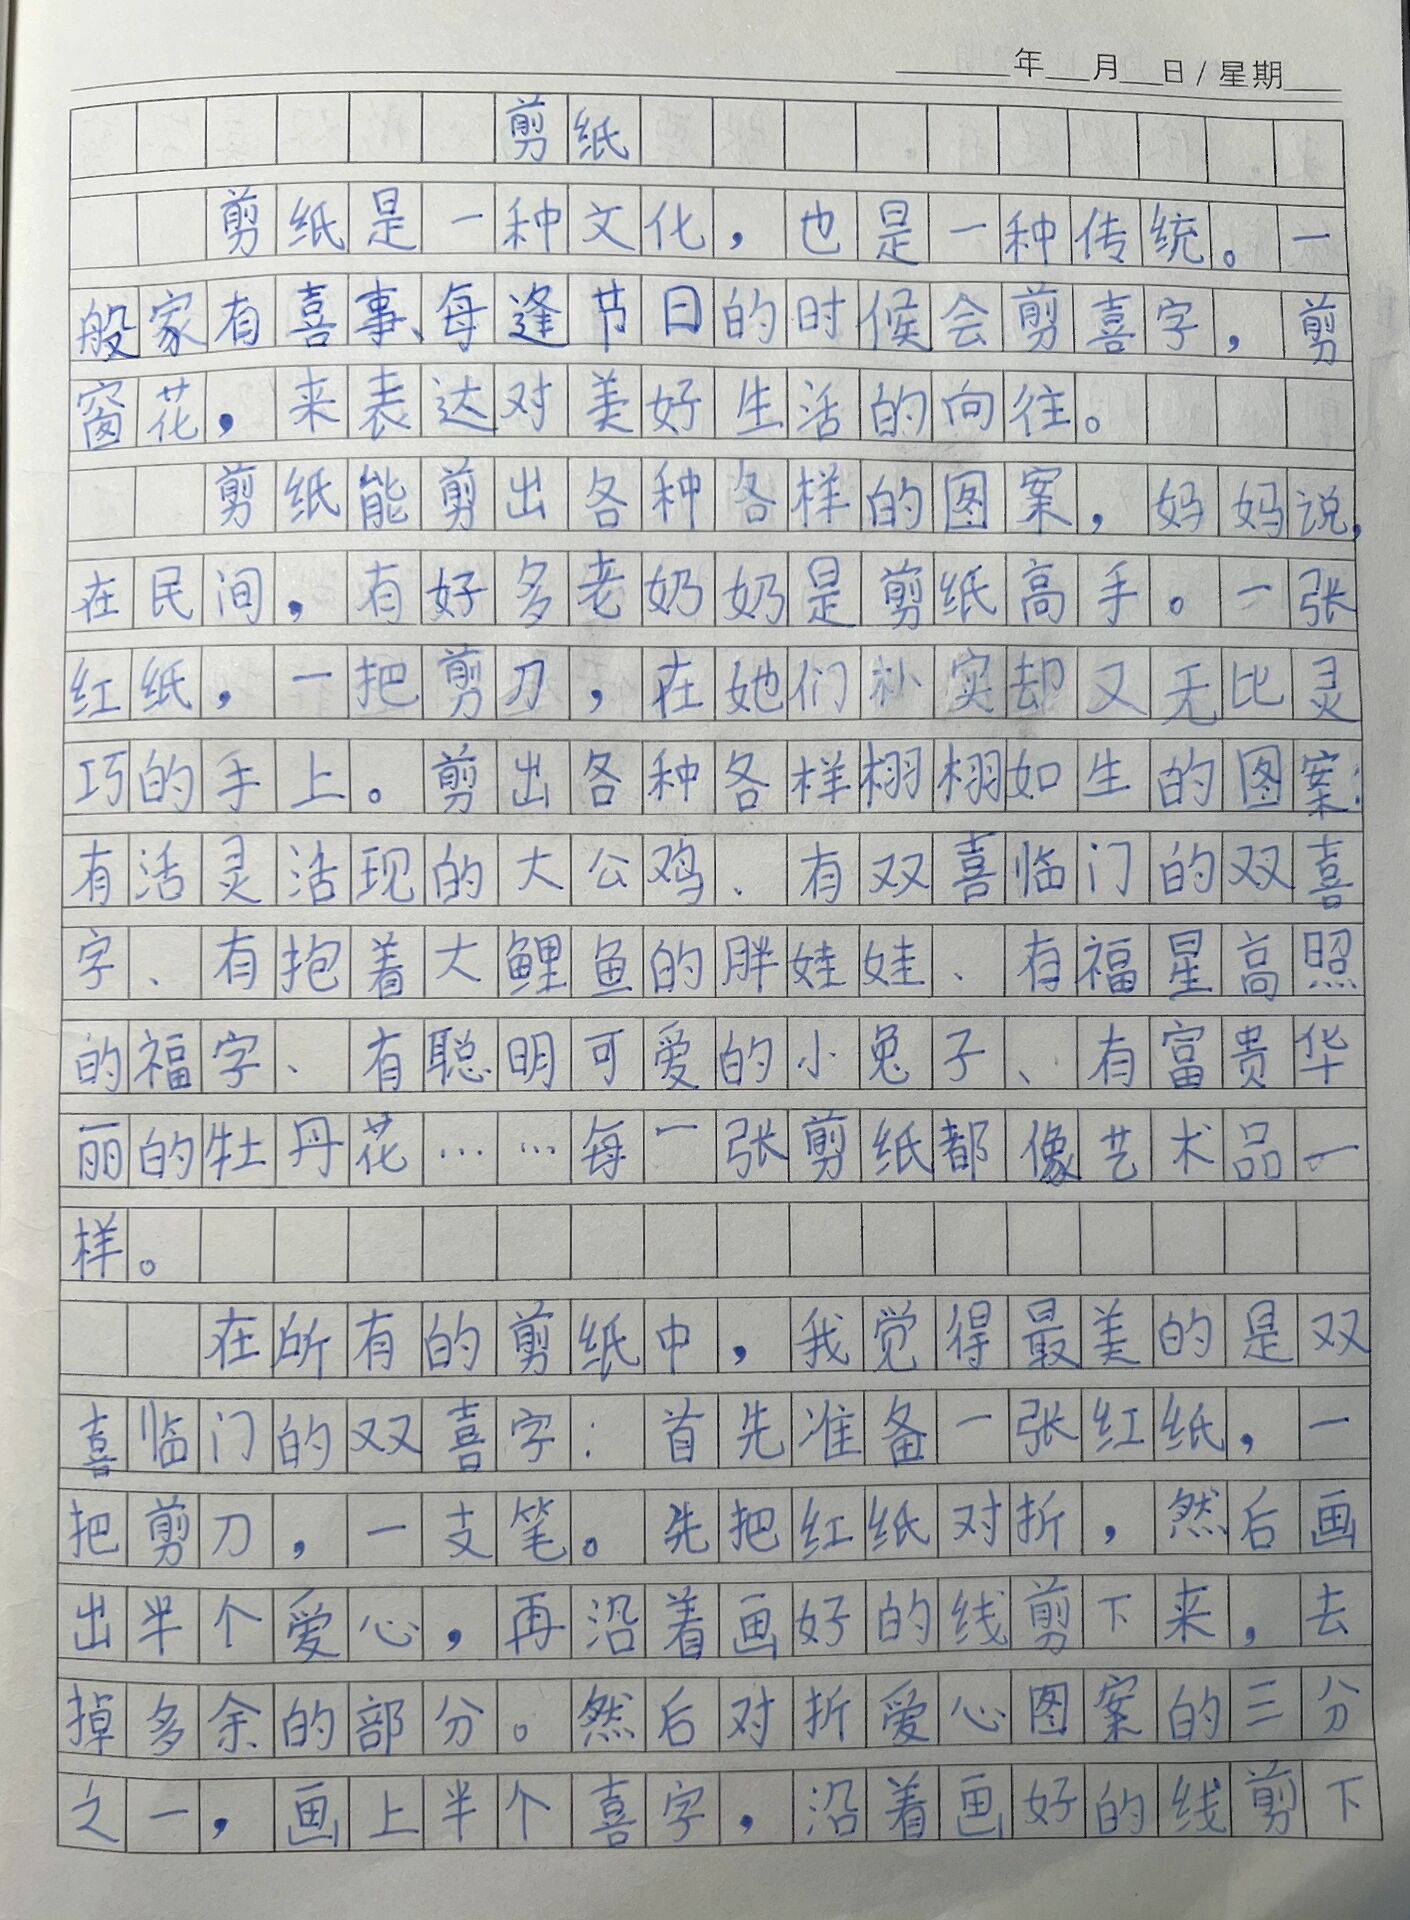 年 月 日/星期
剪纸
剪纸是一种文化，也是一种传统。一
般家有喜事、每逢节日的时候会剪喜字，剪
窗花，来表达对美好生活的向往。
剪纸能剪出各种各样的图案，妈妈说，
在民间，有好多老奶奶是剪纸高手。一张
红纸，一把剪刀，在她们朴实却又无比灵
巧的手上。剪出各种各样栩栩如生的图案：
有活灵活现的大公鸡、有双喜临门的双喜
字、有抱着大鲤鱼的胖娃娃、有福星高照
的福字、有聪明可爱的小兔子、有富贵华
丽的牡丹花……每一张剪纸都像艺术品一
样。
在所有的剪纸中，我觉得最美的是双
喜临门的双喜字：首先准备一张红纸，一
把剪刀，一支笔。先把红纸对折，然后画
出半个爱心，再沿着画好的线剪下来，去
掉多余的部分。然后对折爱心图案的三分
之一，画上半个喜字，沿着画好的线剪下